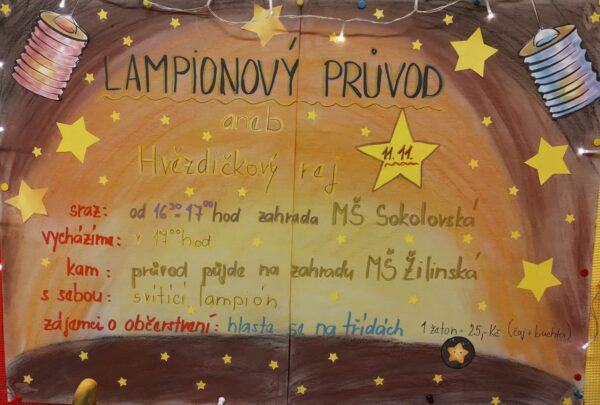 LAMPIONOVÝ PRŮVOD
aneb
Hvězdičkový rej
11.11.
sraz: od 16³⁰-17⁰⁰ hod zahrada MŠ Sokolovská
vycházíme: v 17⁰⁰ hod
kam: průvod půjde na zahradu MŠ Žilinská
s sebou: svítící lampión
zájemci o občerstvení: hlaste se na třídách 1 žeton = 25,-Kč (čaj + buchta)